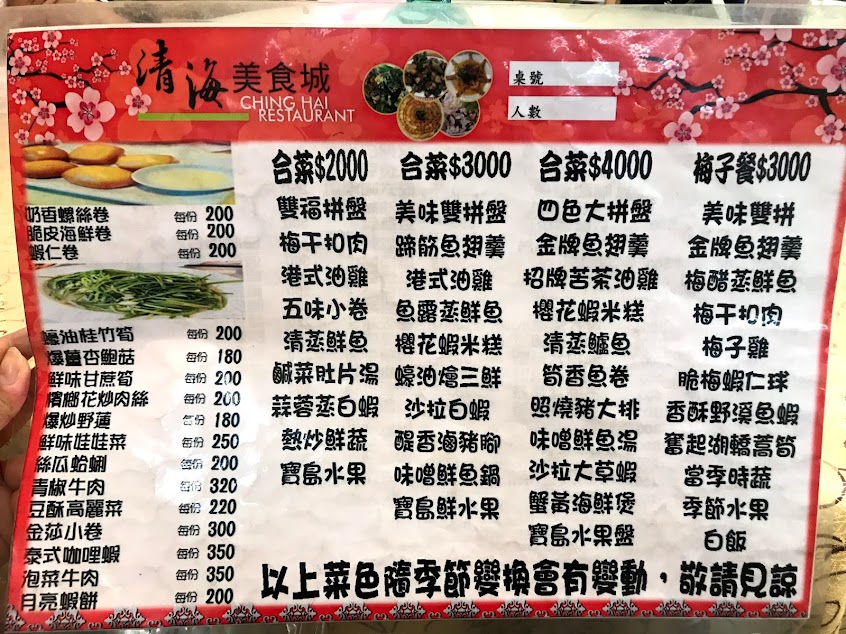 清海美食城
CHING HAI
RESTAURANT
桌號
人數
奶香螺絲卷 每份 200
脆皮海鮮卷 每份 200
蝦仁卷 每份 200
蠔油桂竹筍 每份 200
爆薑杏鮑菇 每份 180
鮮味甘蔗筍 每份 200
檳榔花炒肉絲 每份 200
爆炒野蓮 每份 180
鮮味娃娃菜 每份 250
絲瓜蛤蜊 每份 200
青椒牛肉 每份 320
豆酥高麗菜 每份 220
金莎小卷 每份 300
泰式咖哩蝦 每份 350
泡菜牛肉 每份 350
月亮蝦餅 每份 200
合菜$2000
雙福拼盤
梅干扣肉
港式油雞
五味小卷
清蒸鮮魚
鹹菜肚片湯
蒜蓉蒸白蝦
熱炒鮮蔬
寶島水果
合菜$3000
美味雙拼盤
蹄筋魚翅羹
港式油雞
魚露蒸鮮魚
櫻花蝦米糕
蠔油燴三鮮
沙拉白蝦
醍香滷豬腳
味噌鮮魚鍋
寶島鮮水果
合菜$4000
四色大拼盤
金牌魚翅羹
招牌苦茶油雞
櫻花蝦米糕
清蒸鱸魚
筒香魚卷
照燒豬大排
味噌鮮魚湯
沙拉大草蝦
蟹黃海鮮煲
寶島水果盤
梅子餐$3000
美味雙拼
金牌魚翅羹
梅醋蒸鮮魚
梅干扣肉
梅子雞
脆梅蝦仁球
香酥野溪魚蝦
奮起湖轎篙筍
當季時蔬
季節水果
白飯
以上菜色隨季節變換會有變動，敬請見諒